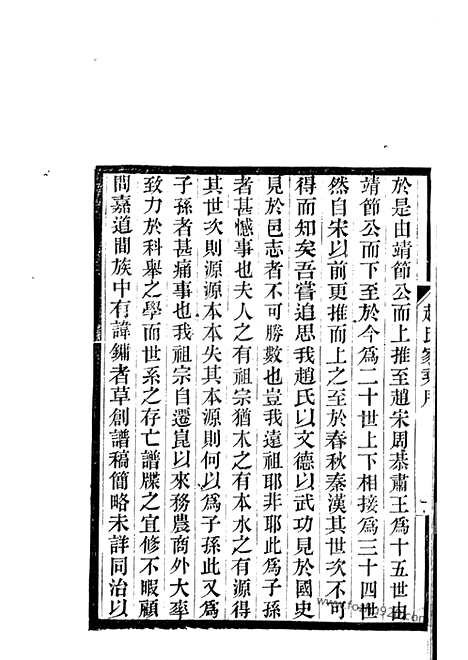 於是由靖節公而上推至趙宋周恭肅王爲十五世由
靖節公而下至於今爲二十世上下相接爲三十四世
然自宋以前更推而上之至於春秋秦漢其世次不可
得而知矣吾嘗追思我趙氏以文德以武功見於國史
見於邑志者不可勝數也豈我遠祖耶非耶此爲子孫
者甚憾事也夫人之有祖宗猶木之有本水之有源得
其世次則源源本本失其本源則何以爲子孫此又爲
子孫者甚痛事也我祖宗自遷崑以來務農商外大率
致力於科舉之學而世系之存亡譜牒之宜修不暇顧
問嘉道間族中有諱鏞者草創譜稿簡略未詳同治以
趙氏家乘序